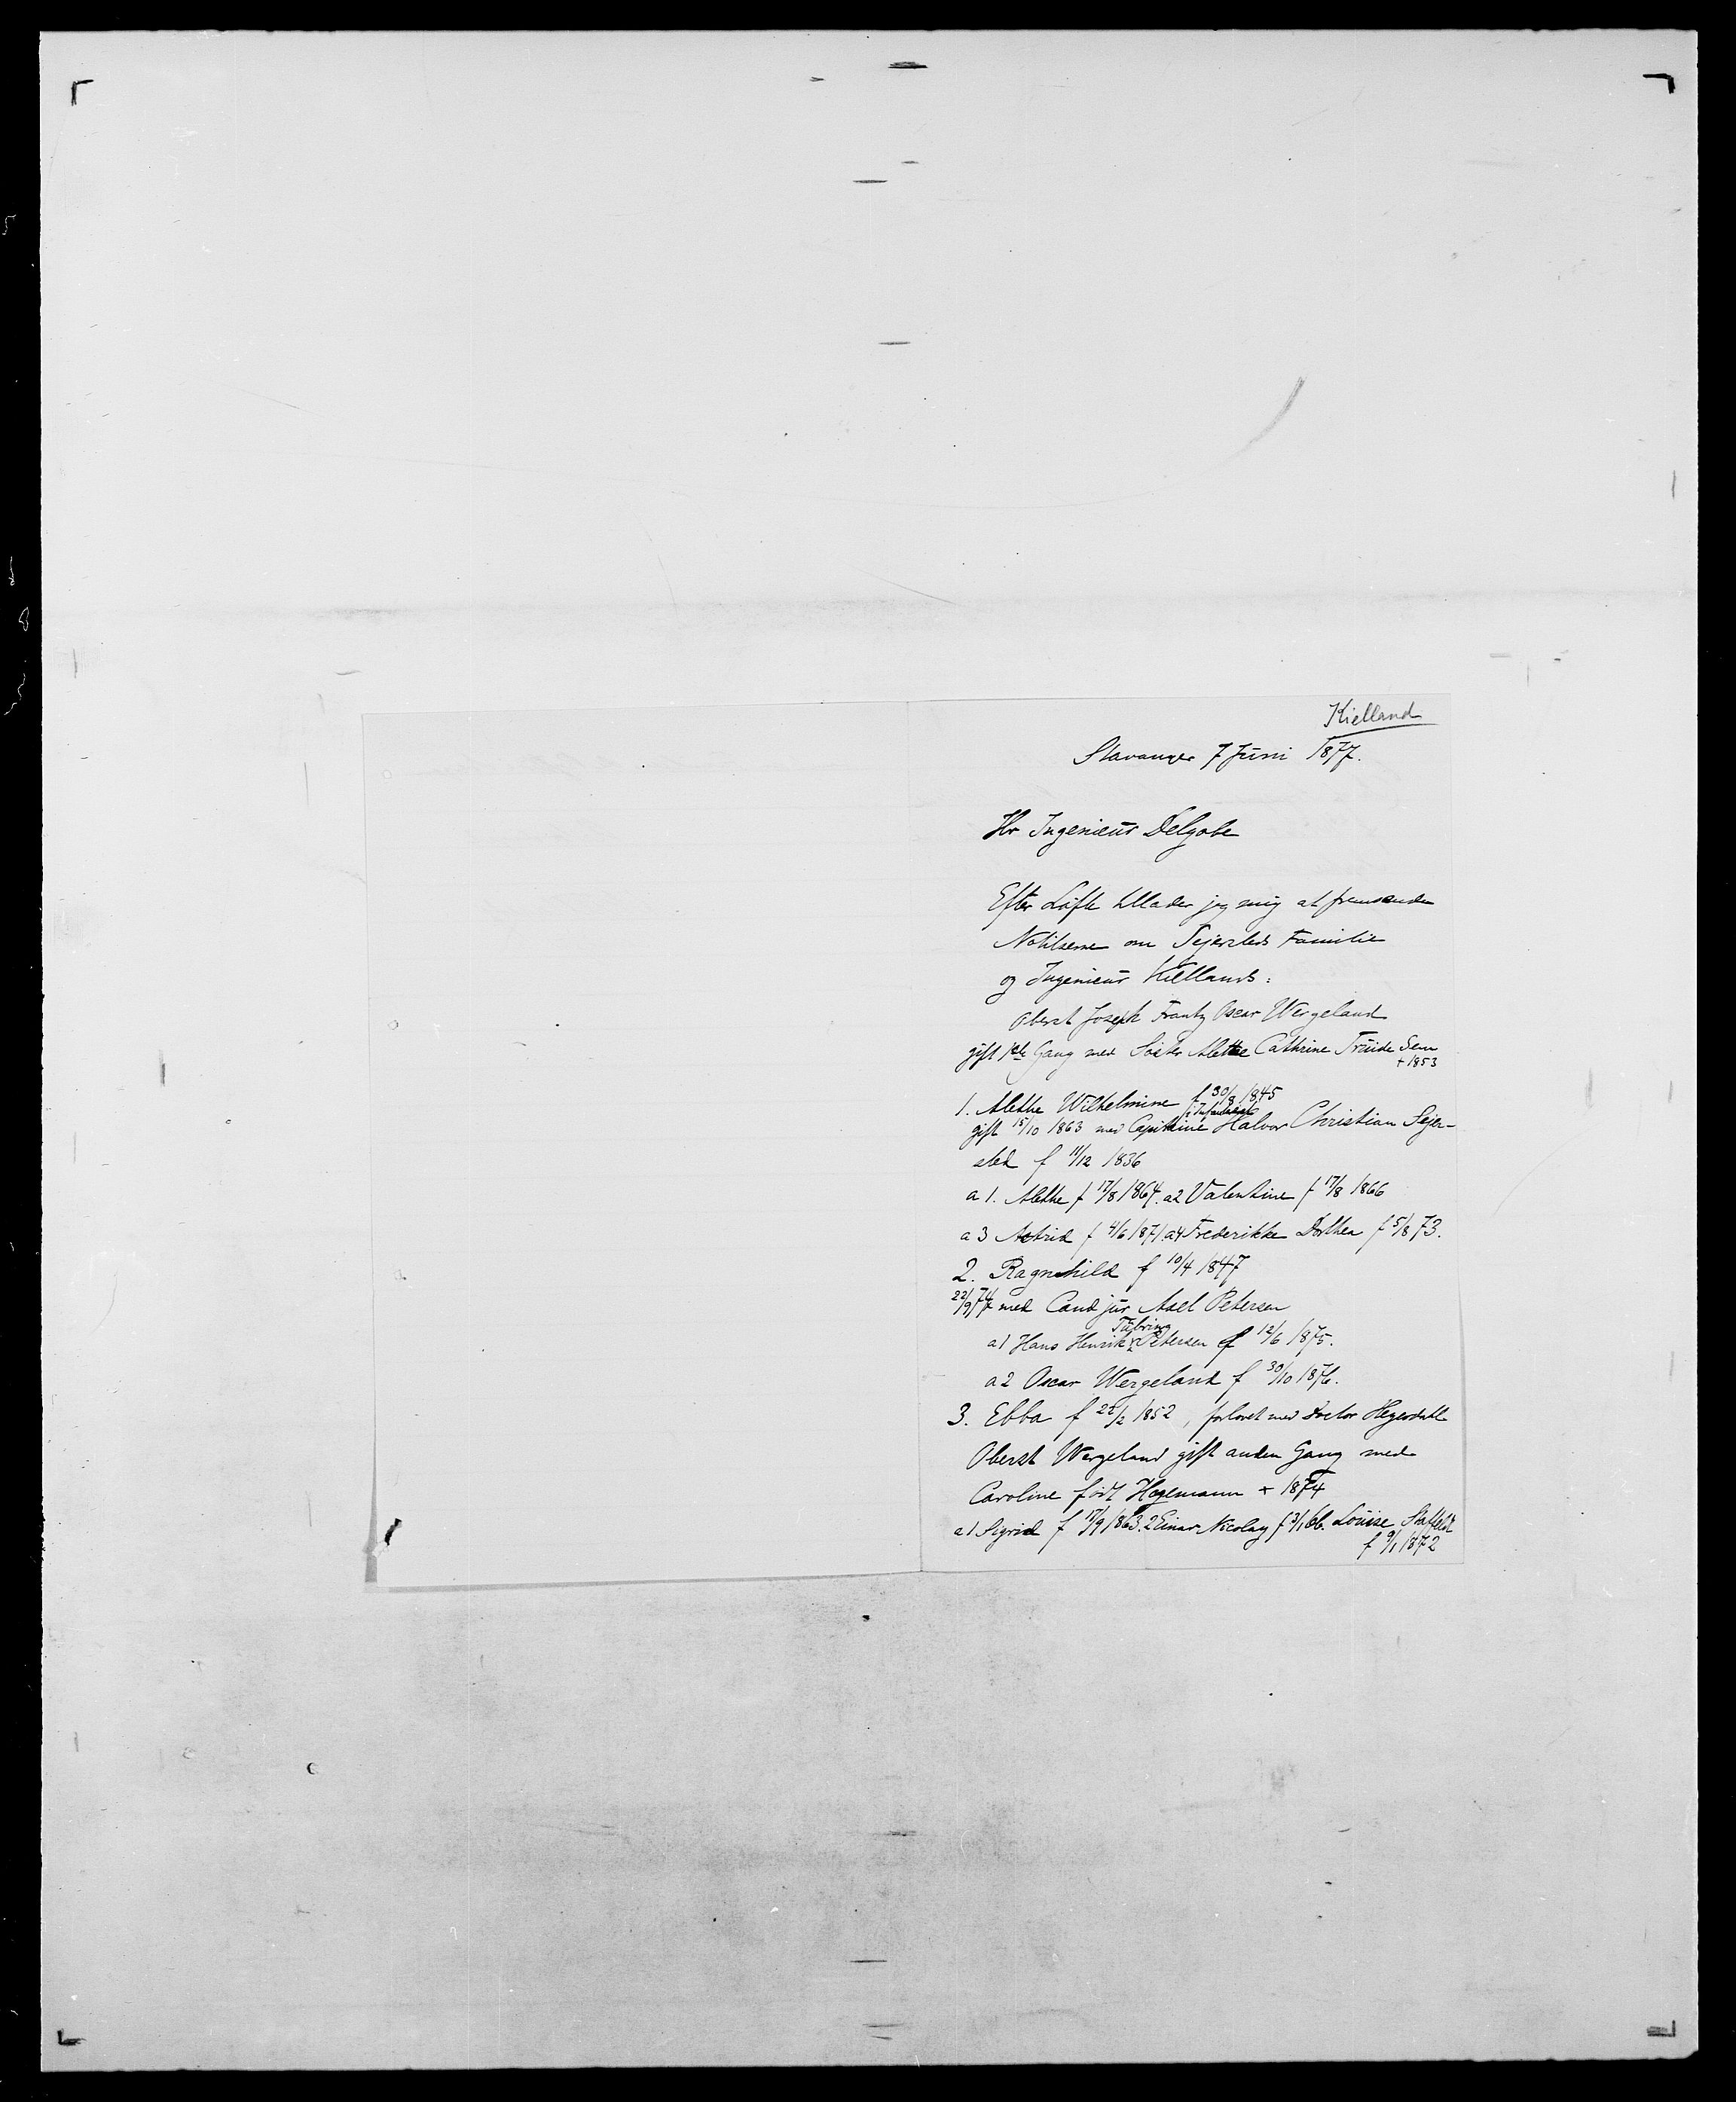 Kielland
Stavanger 7 Juni 1877.
Hr Ingenieur Delgobe
Efter Løfte tillader jeg mig at fremsende
Notitserne om Sejersteds Familie
og Ingenieur Kiellands:
Oberst Joseph Frantz Oscar Wergeland
gift 1ste Gang med Alethe Cathrine Sem
+ 1853
1. Alethe Wilhelmine f 30/8 1845
gift 15/10 1863 med Capitaine i Infanteriet Halvor Christian Sejer-
sted f 11/12 1836
a 1. Alethe f 17/8 1864. a2 Valentine f 17/8 1866
a 3 Astrid f 4/6 1871. a4 Frederikke Dorthea f 5/8 73.
2. Ragnhild f 10/4 1847
22/9 74 med Cand jur Axel Petersen
a1 Hans Henrik Petersen f 12/6 1875.
a2 Oscar Wergeland f 30/10 1876.
3. Ebba f 22/2 1852, forlovet med Doctor Hegerdahl
Oberst Wergeland gift anden Gang med
Caroline født Hagemann + 1874
a1 Sigrid f 17/9 1863. 2 Einar Nicolay f 3/1 66. Louise Staffeldt
f 9/1 1872